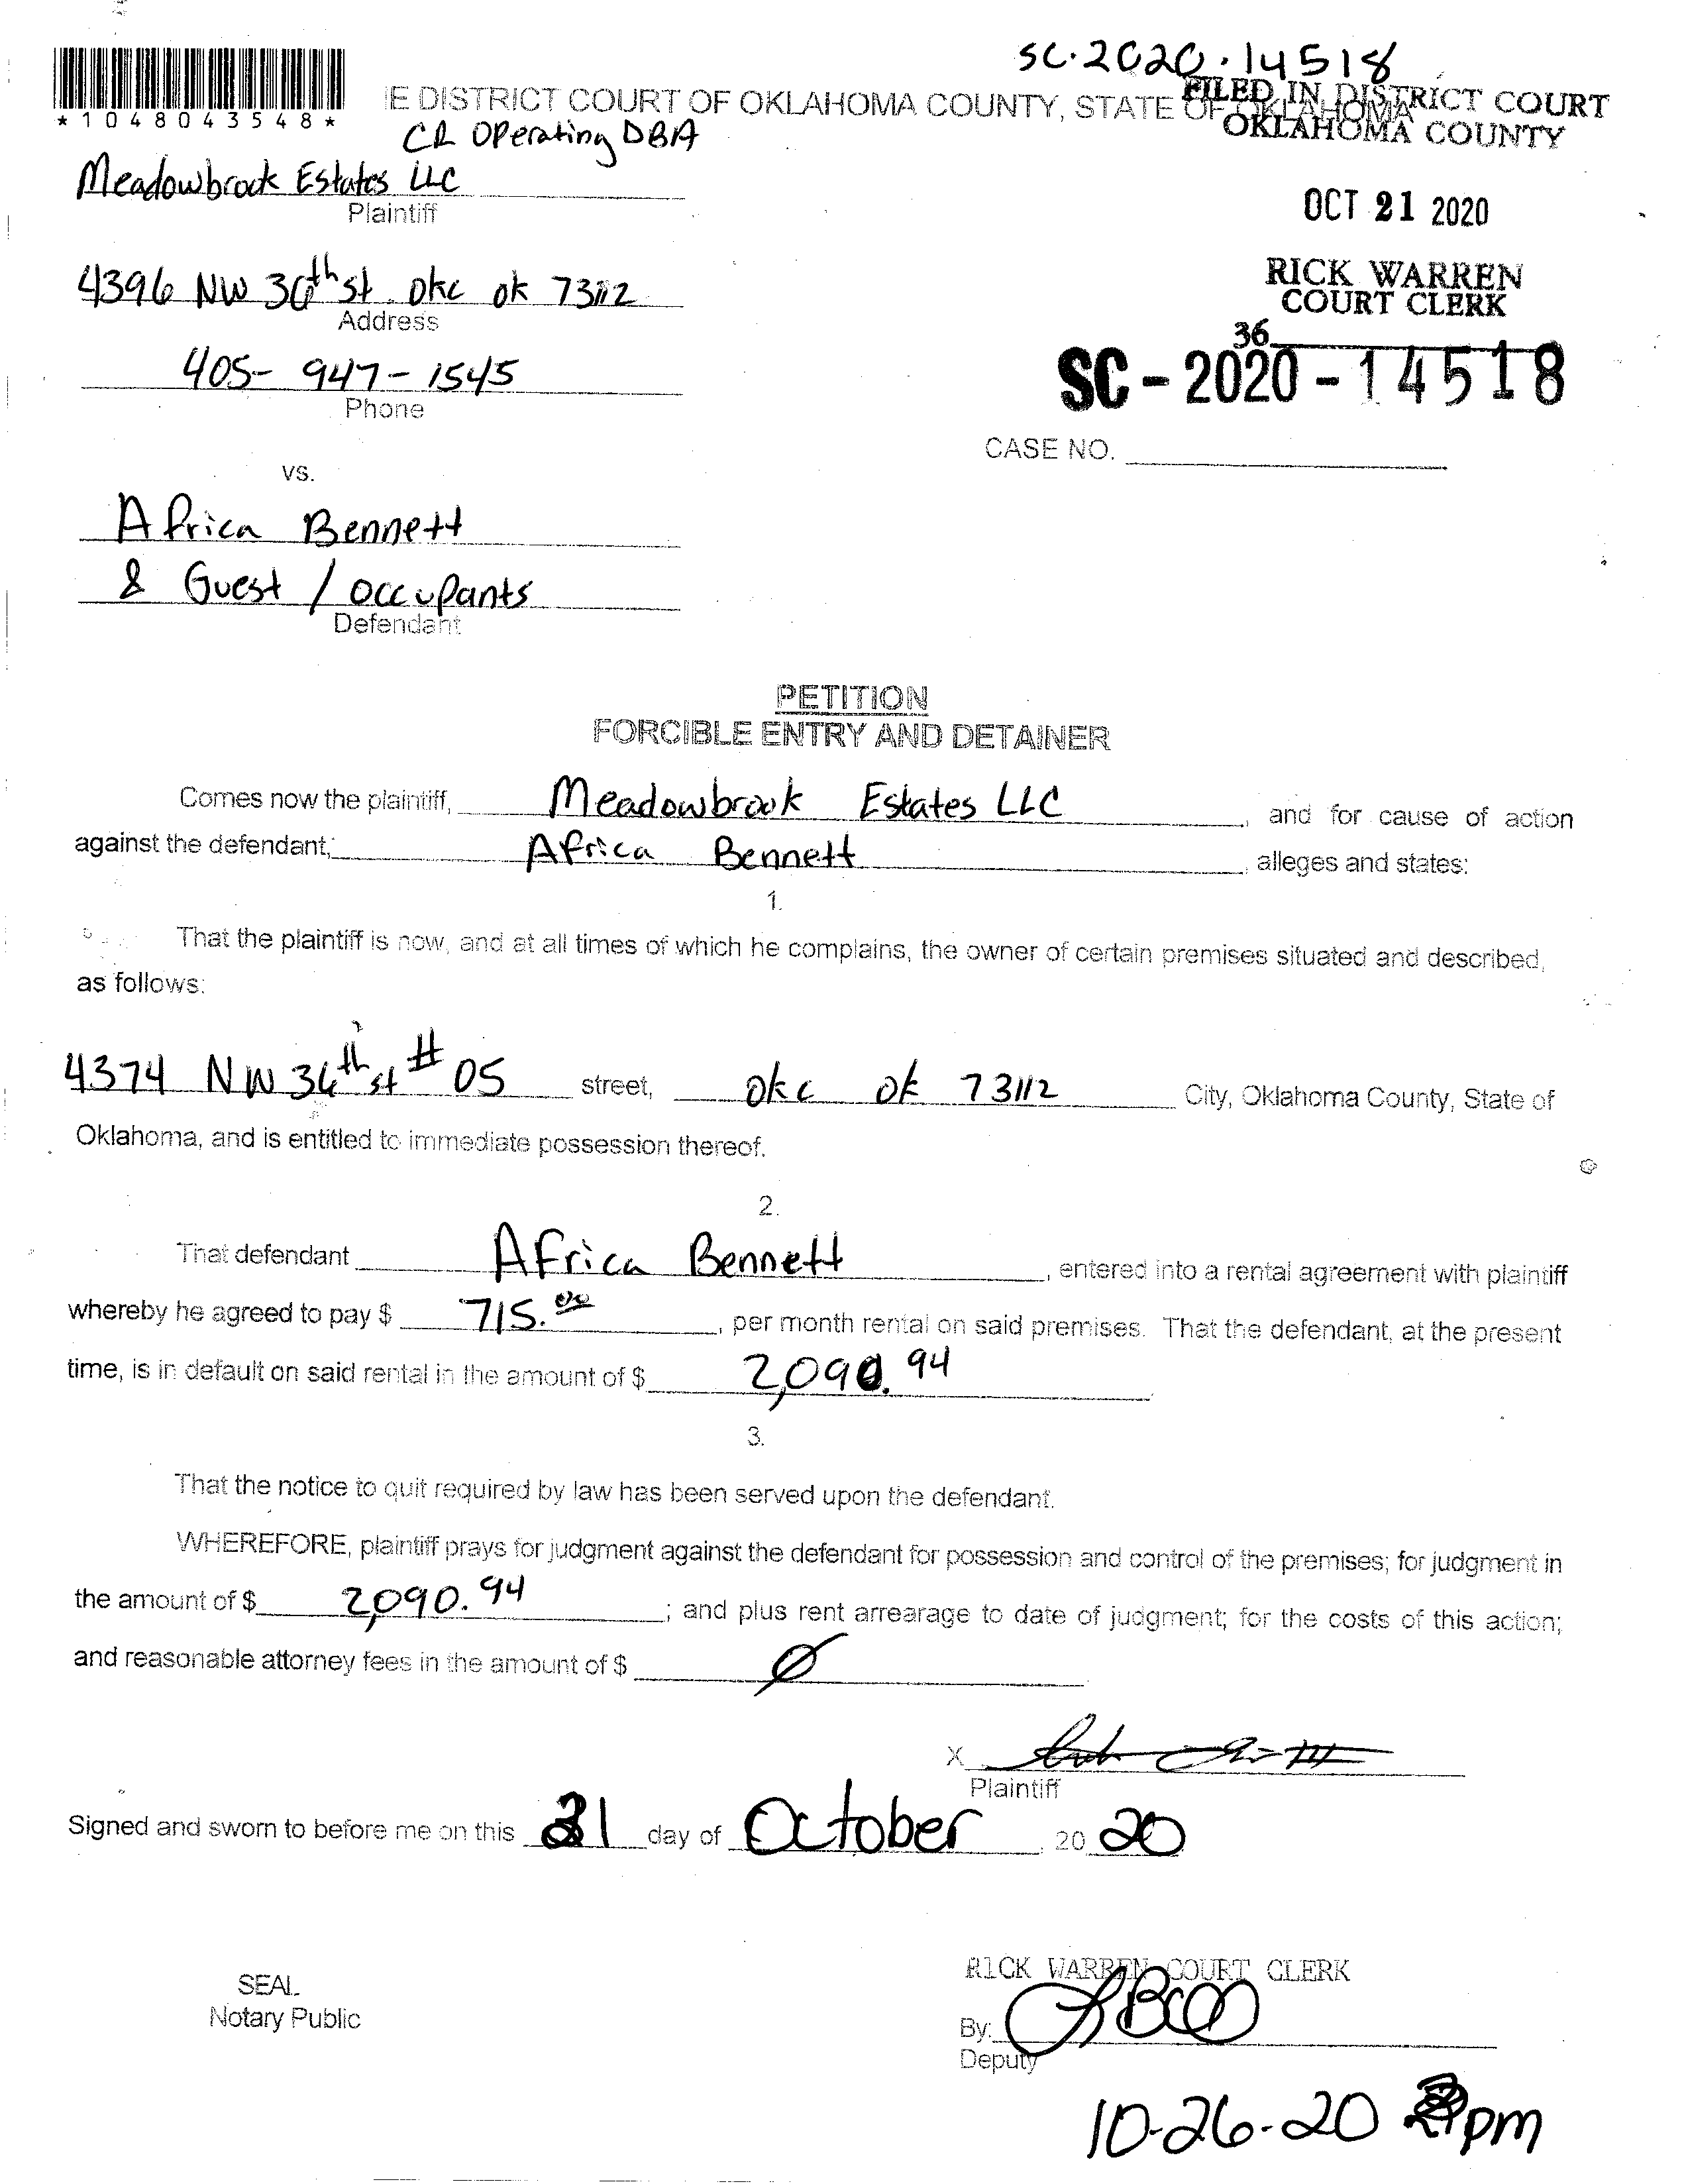 SC-2020-14518
*1048043548*
E DISTRICT COURT OF OKLAHOMA COUNTY, STATE OF OKLAHOMA
FILED IN DISTRICT COURT
OKLAHOMA COUNTY
CR Operating DBA
Meadowbrook Estates LLC
Plaintiff
OCT 21 2020
RICK WARREN
COURT CLERK
4396 NW 36th st okc ok 73112
Address
36
SC-2020-14518
405-947-1545
Phone
CASE NO.
vs.
Africa Bennett
& Guest / occupants
Defendant
PETITION
FORCIBLE ENTRY AND DETAINER
Comes now the plaintiff, Meadowbrook Estates LLC, and for cause of action
against the defendant, Africa Bennett, alleges and states:
1.
That the plaintiff is now, and at all times of which he complains, the owner of certain premises situated and described,
as follows:
4374 NW 36th st # 05 street, okc ok 73112 City, Oklahoma County, State of
Oklahoma, and is entitled to immediate possession thereof.
2.
That defendant Africa Bennett, entered into a rental agreement with plaintiff
whereby he agreed to pay $ 715.00, per month rental on said premises. That the defendant, at the present
time, is in default on said rental in the amount of $ 2,090.94
3.
That the notice to quit required by law has been served upon the defendant.
WHEREFORE, plaintiff prays for judgment against the defendant for possession and control of the premises; for judgment in
the amount of $ 2,090.94; and plus rent arrearage to date of judgment; for the costs of this action;
and reasonable attorney fees in the amount of $ Ø
X
Plaintiff
Signed and sworn to before me on this 21 day of October, 20 20
SEAL
Notary Public
RICK WARREN COURT CLERK
By:
Deputy
10-26-20 pm